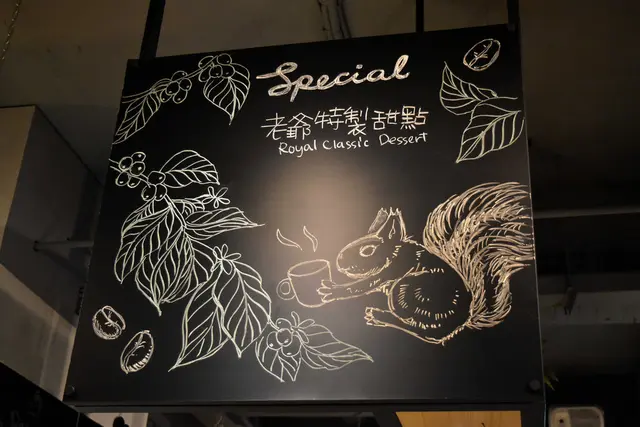 Special
老爺特製甜點
Royal Classic Dessert